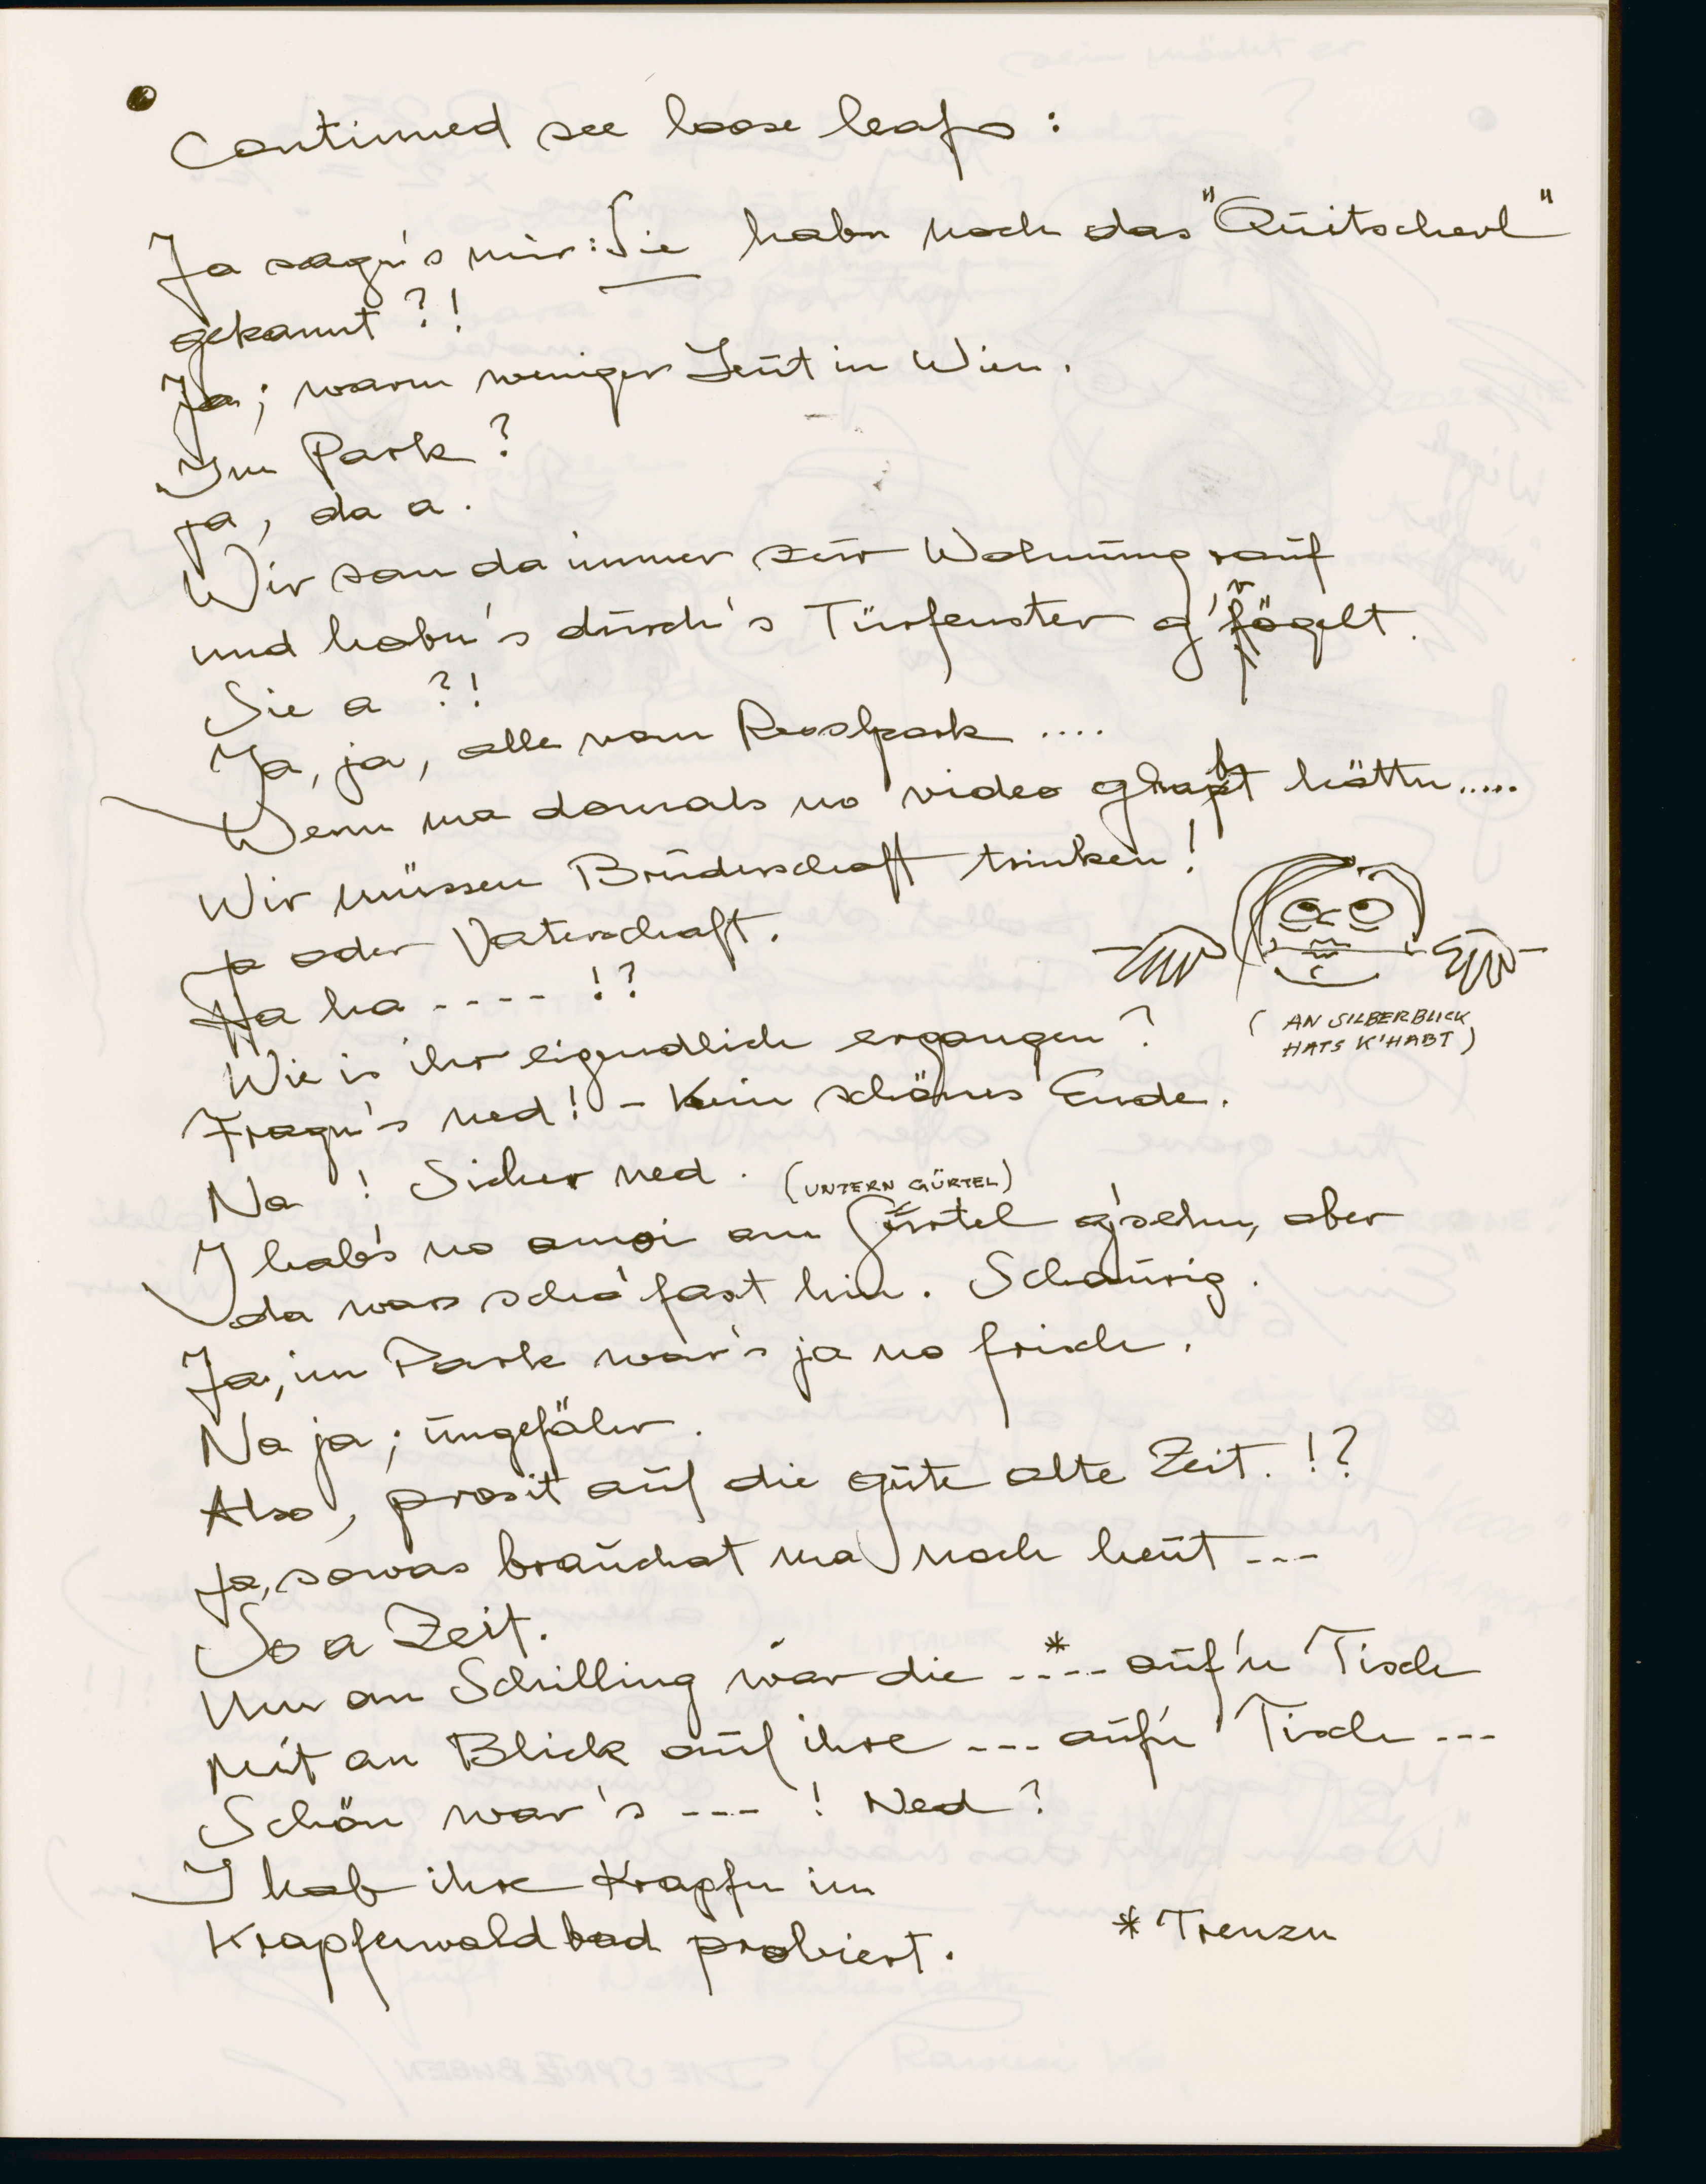 Continued see loose leafs :
Ja sagn's mir: Sie habn noch das "Quitscherl"
gekannt ?!
Ja ; warn weniger Leut in Wien .
Im Park ?
ja , da a .
Wir san da immer zur Wohnung rauf
und habn's durch's Türfenster g'vögelt .
Sie a ?!
Ja, ja, alle vom Resslpark ....
Wenn ma damals no video ghabt hättn .....
Wir müssen Bruderschaft trinken !
Ja oder Vaterschaft .
Ha ha ---- !?
Wie is ihr eigendlich ergangen ?
( AN SILBERBLICK
HATS K'HABT )
Fragn's ned ! - Kein schönes Ende .
Na ! Sicher ned .
(UNTERN GÜRTEL)
I hab's no amoi am Gürtel g'sehn, aber
da wars scho' fast hin . Schaurig .
Ja, im Park war's ja no frisch .
Na ja ; ungefähr .
Also , prosit auf die gute alte Zeit . !?
Ja, sowas brauchat ma noch heut ---
So a Zeit .
Um an Schilling war die --*-- auf'n Tisch
Mit an Blick auf ihre --- auf'n Tisch ---
Schön war's --- ! Ned ?
I hab ihre Krapfn im
Krapfenwaldbad probiert .
* Trenzn